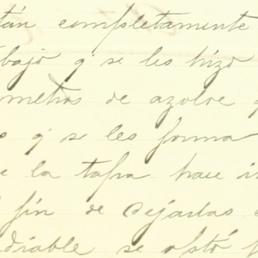 tán completamente
bajo q se les hizo
metros de azolve
q se les forma
e la tapa hace in
fin de dejarlas
diable se optó p